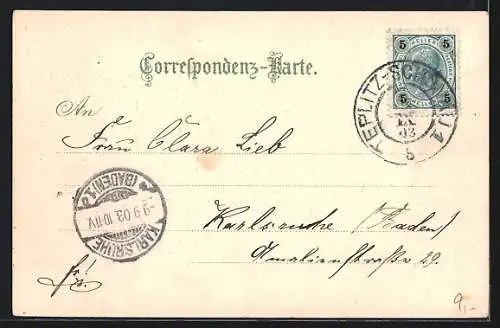 Correspondenz-Karte.
5 HELLER 5
5 HELLER 5
TEPLITZ-SCH
1
IX
03
b
An
Frau Clara Lieb
KARLSRUHE (BADEN) 1
-9.9.03.10-11V.
Karlsruhe (Baden)
Amalienstraße 29.
fr!
9,-